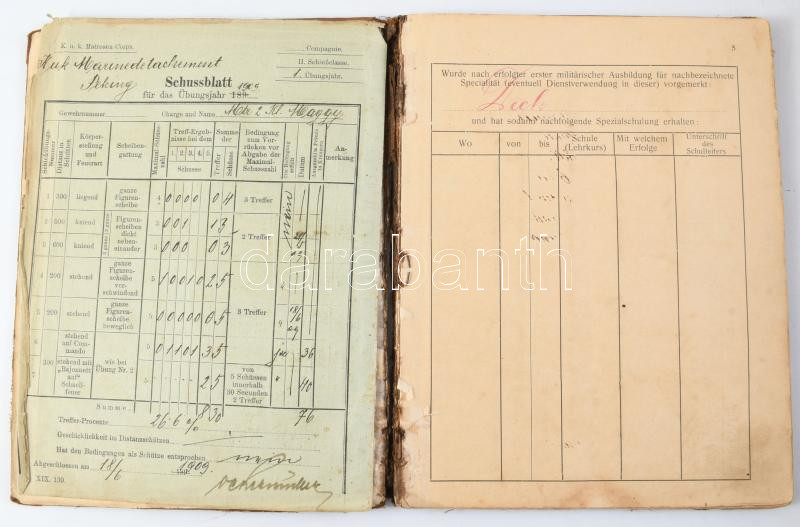 K. u. k. Matrosen-Corps.
Compagnie.
K.u.k. Marinedetachement
II. Schießclasse.
Peking
Schussblatt
1. Übungsjahr.
für das Übungsjahr 189 1909
Gewehrnummer
Charge und Name Mtr 2 Kl. Maggy
Distanz in Schritten
Körperstellung und Feuerart
Scheibengattung
Treff-Ergebnisse bei dem
1. 2. 3. 4. 5.
Schusse
Summe der
Treffer
Schüsse
Bedingung zum Vorrücken vor Abgabe der Maximal-Schusszahl
Datum
Anmerkung
1 300 liegend ganze Figurenscheibe 4 0 0 0 0 0 4 3 Treffer nein
2 500 kniend Figurenscheiben dicht nebeneinander 3 0 0 1 1 3 2 Treffer
3 600 kniend 3 0 0 0 0 3
4 200 stehend ganze Figurenscheibe verschwindend 5 1 0 0 1 0 2 5 3 Treffer
5 200 stehend ganze Figurenscheibe beweglich 5 0 0 0 0 0 0 5
6 300 stehend auf Commando wie bei Übung Nr. 2 5 0 1 1 0 1 3 5 36
7 stehend mit „Bajonnett auf“ Schnellfeuer 5 2 5 von 5 Schüssen innerhalb 30 Secunden 2 Treffer 40
Summe 8 30 76
Treffer-Procente 26·6 %
Geschicklichkeit im Distanzschätzen
Hat den Bedingungen als Schütze entsprochen nein
Abgeschlossen am 18/6 1909.
XIX. 139.
5
Wurde nach erfolgter erster militärischer Ausbildung für nachbezeichnete
Specialität (eventuell Dienstverwendung in dieser) vorgemerkt:
und hat sodann nachfolgende Spezialschulung erhalten:
Wo
von
bis
Schule (Lehrkurs)
Mit welchem Erfolge
Unterschrift des Schulleiters
darabanth